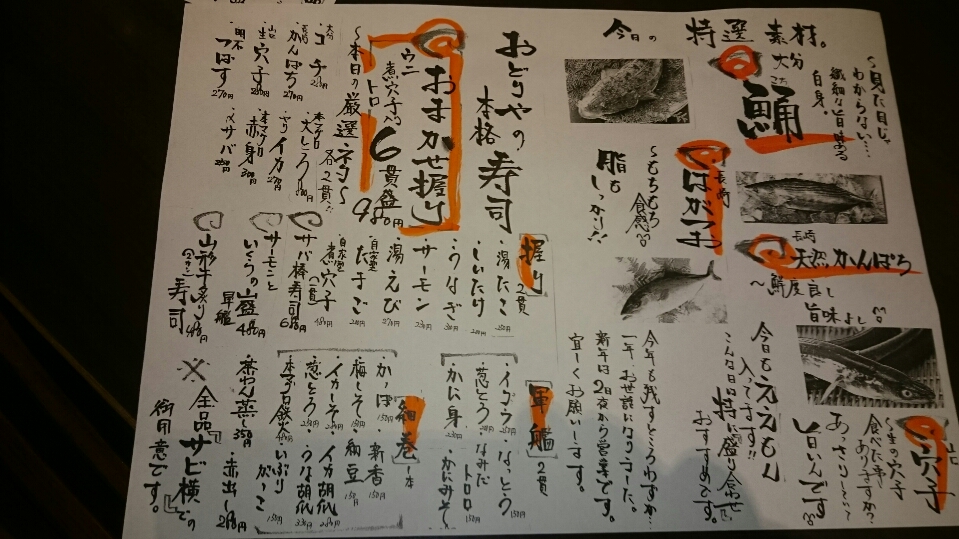 今日の 特選素材。
大分 こち 鯒
〜見た目じゃ
わからない…
繊細な旨味ある
白身。
長崎 はがつお
〜もちもち
食感
脂も
しっかり!!
長崎 天然かんぱち
〜鮮度良し
旨味よし
穴子
〜生の穴子
食べた事
ありますか?
あっさりしてい
旨いんです
今日もええもん
入ってます!!
こんな日は特に盛り合わせ
おすすめです。
今年も残すところわずか…
一年、お世話になりました。
新年は2日夜から営業です。
宜しくお願いします。
おどりやの
本格 寿司
おまかせ握り
ウニ
煮穴子
トロ
入り
6貫盛
980円
〜本日の厳選ネタ〜
各2貫
コチ
長崎 かんぱち 270円
生穴子
つばす 270円
本マグロ 大とろ
イカ
本マグロ 赤身
〆サバ
握り 2貫
・湯たこ
・しいたけ
・うなぎ
・サーモン
・湯えび
・自家製 たまご
・自家製 煮穴子
サバ棒寿司(一貫)
サーモンと
いくらの山盛 軍艦
山形牛炙り寿司
軍艦 2貫
・イクラ
・なっとう
・葱とろ
・なみだトロロ
・かに身
・かにみそ
細巻 一本
・かっぱ
・新香
・梅しそ
・納豆
・イカしそ
・イカ胡瓜
・葱とろ
・うな胡瓜
・本マグロ鉄火
・いぶりがっこ
・茶わん蒸し
・赤出し
※全品『サビ横』の
御用意です。